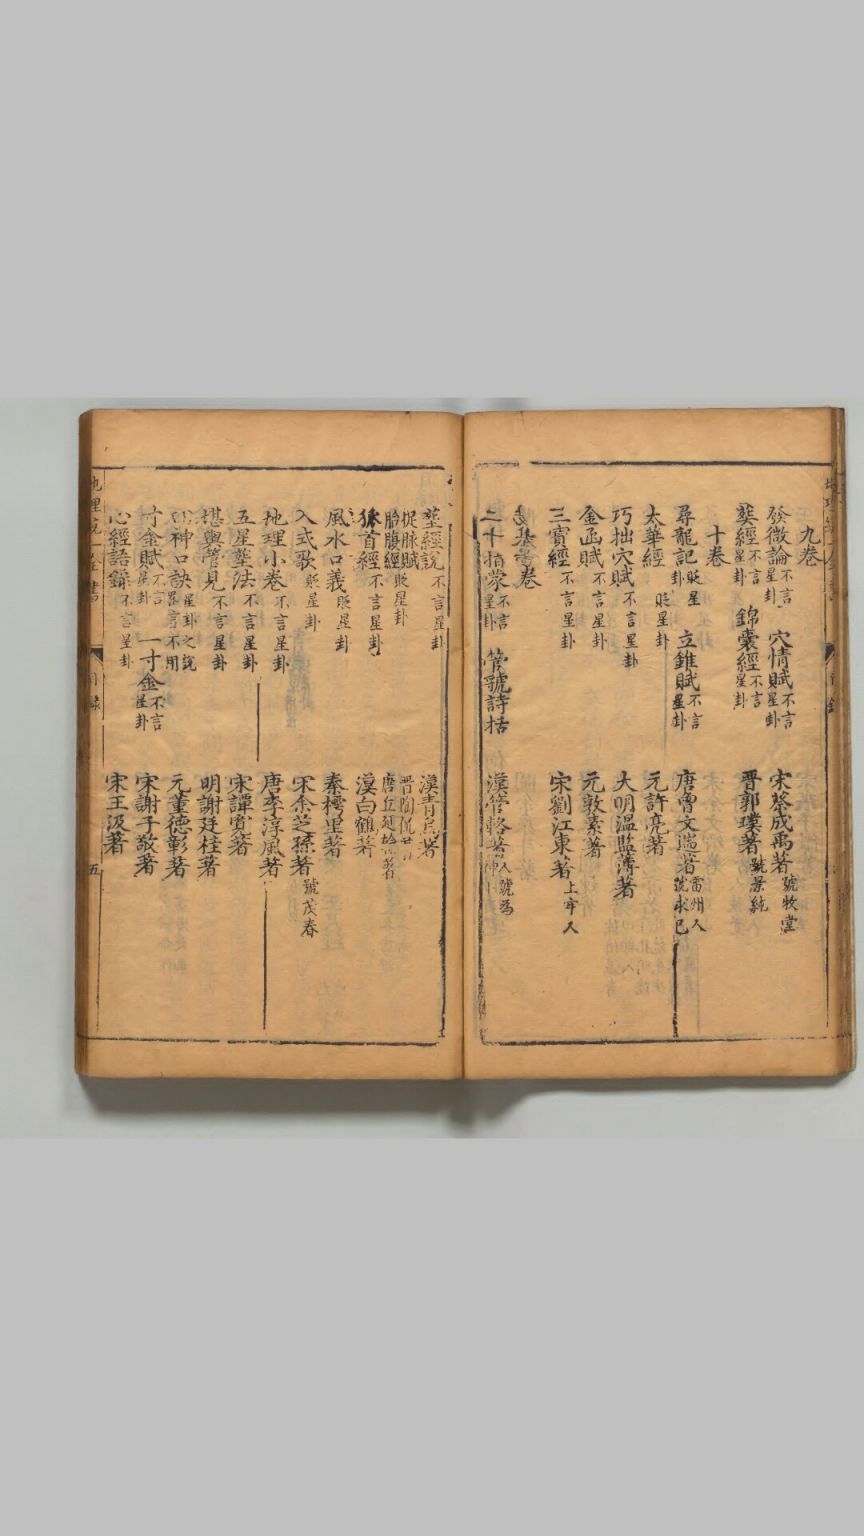 九卷
發微論不言星卦 穴情賦不言星卦 宋蔡成禹著號牧堂
葬經不言星卦 錦囊經不言星卦 晋郭璞著號景純
十卷
尋龍記貶星卦 立錐賦不言星卦 唐曾文遄著雷州人號求已
太華經貶星卦 元許亮著
巧拙穴賦不言星卦 大明溫監簿著
金函賦不言星卦 元敦素著
三寶經不言星卦 宋劉江東著上牢人
卷
二十指蒙不言星卦 管號詩括 漢管輅著
葬經說不言星卦 漢青烏著
捉脉賦 胎腹經貶星卦 晋陶侃 唐丘延翰著
狐首經不言星卦 漢白鶴著
風水口義貶星卦 秦樗里著
入式歌貶星卦 宋余芝孫著號茂春
地理小卷不言星卦 唐李淳風著
五星葬法不言星卦 宋譚寬著
堪輿管見不言星卦 明謝廷桂著
神口訣 不用星卦之說 元董德彰著
寸金賦不言星卦 一寸金不言星卦 宋謝子敬著
心經語錄不言星卦 宋王伋著
地理 全書
目錄
五